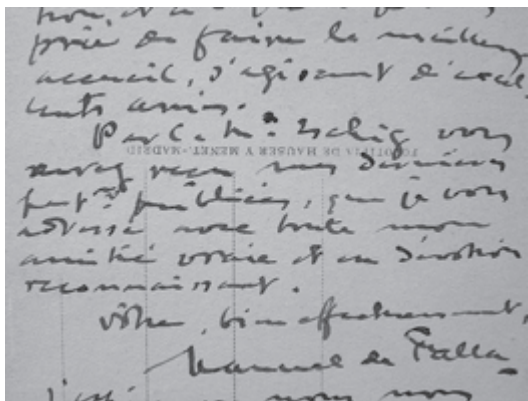 prie de faire le meilleur
accueil, s'agissant d'excel
lents amis.
Par la Mon Eschig vous
FOTOTIPIA DE HAUSER Y MENET.-MADRID
aurez reçu mes dernières
part. publiées, que je vous
adresse avec toute mon
amitié vraie et en dévotion
reconnaissant.
Vôtre, bien affectueusement,
Manuel de Falla
nous nous